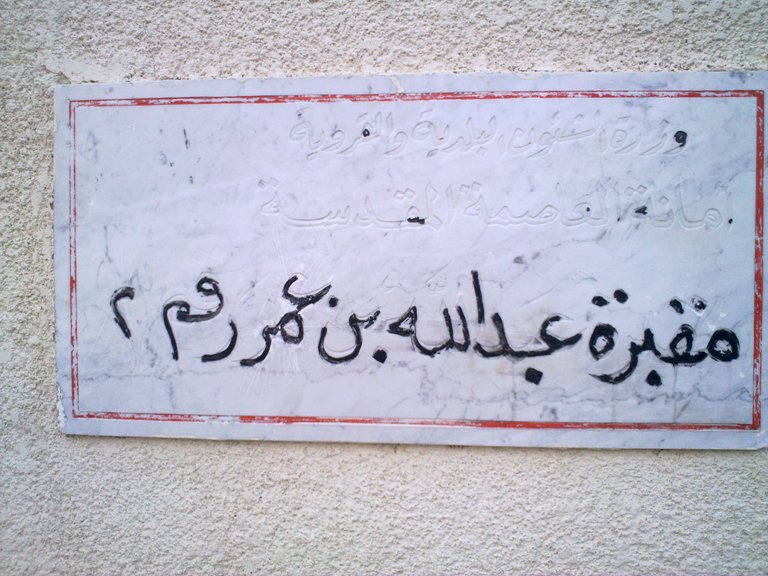 وزارة الشئون البلدية والقروية
أمانة العاصمة المقدسة
مقبرة عبدالله بن عمر رقم ٢